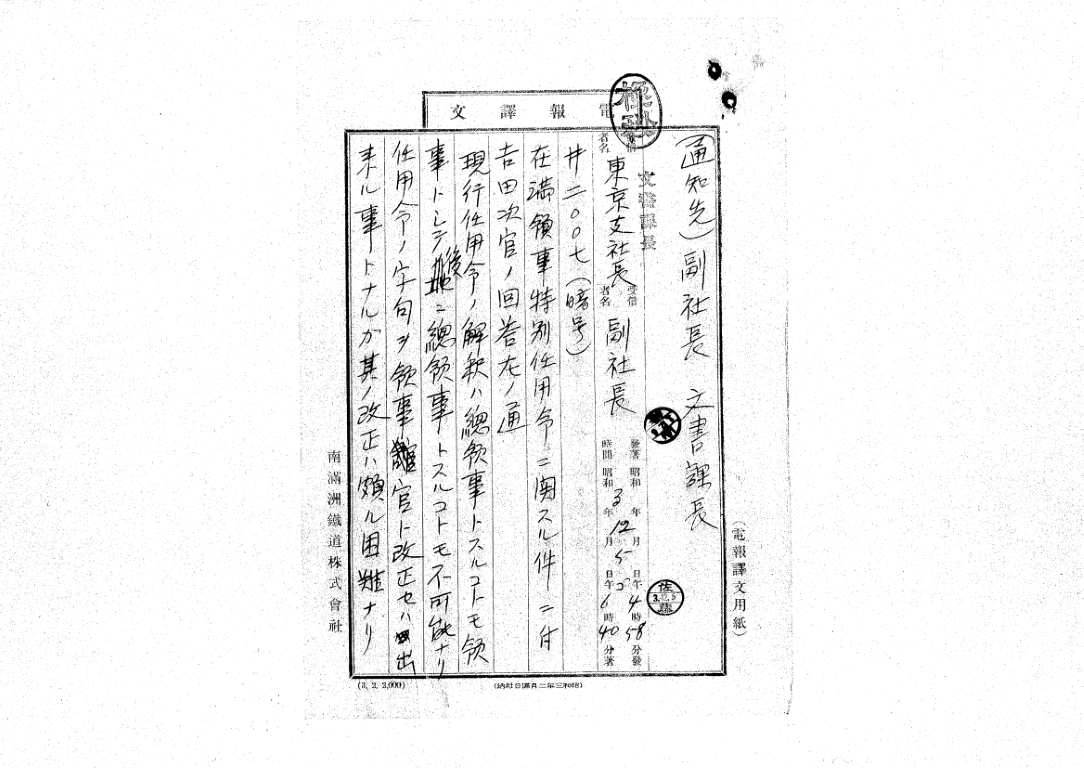 電報譯文
(通知先) 副社長 文書課長
文書課長
發信者名 東京支社長 受信者名 副社長
發著時間 昭和3年12月5日午 4時58分發
昭和 年 月 日午2 6時40分著
佐藤 3.12.5
廾二〇〇七(暗号)
在満領事特別任用令ニ関スル件ニ付
吉田次官ノ回答左ノ通
現行任用令ノ解釈ハ總領事トスルコトモ領
事トシテ後ニ總領事トスルコトモ不可能ナリ
任用令ノ字句ヲ領事官ト改正セハ出
来ル事トナルカ其ノ改正ハ頗ル困難ナリ
南滿洲鐵道株式會社
(電報譯文用紙)
(3. 2. 2,000)
(昭和三年二月滿日社納)